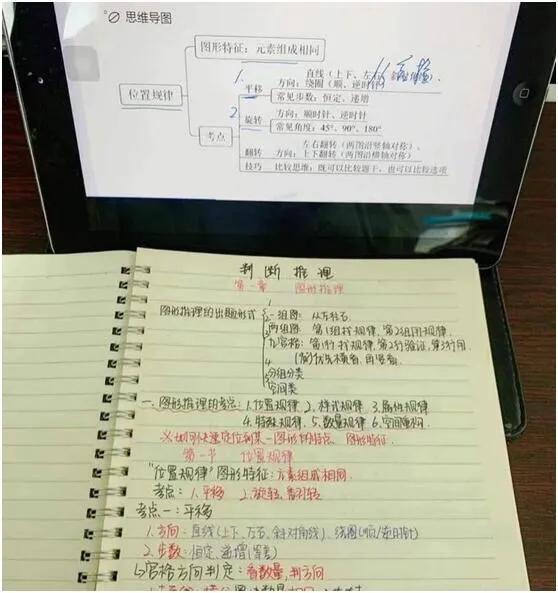 思维导图
图形特征：元素组成相同
位置规律
考点
1.
平移
方向：直线（上下、左右
绕圈（顺、逆时针）
常见步数：恒定、递增
2.
旋转
方向：顺时针、逆时针
常见角度：45°、90°、180°
翻转
方向：左右翻转（两图沿竖轴对称）、
上下翻转（两图沿横轴对称）
技巧
比较思维：既可以比较题干，也可以比较选项
判断推理
第一章 图形推理
图形推理的出题形式
一组图：从左往右
两组图：第1组找规律，第2组用规律.
九宫格：第1行找规律，第2行验证，第3行用.
优先横看，再竖看.
分组分类
空间类
一、图形推理的考点：1.位置规律 2.样式规律 3.属性规律
4.特殊规律. 5.数量规律 6.空间重构.
※如何快速定位到某一图形的特点 图形特征.
第一节 位置规律
“位置规律”图形特征：元素组成相同.
考点：1.平移 2.旋转、翻转
考点一：平移
1.方向：直线（上下、左右、斜对角线）、绕圈（顺/逆时针）
2.步数：恒定、递增（等差）
宫格方向判定：看数量，判方向